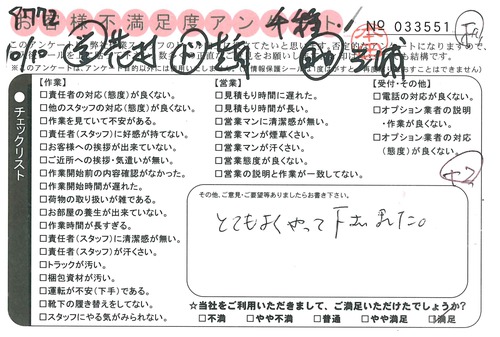 8772
お客様不満足度アンケート
千種
No 033551
10/10
【作業】
□責任者の対応(態度)が良くない。
□他のスタッフの対応(態度)が良くない。
□作業を見ていて不安がある。
□責任者(スタッフ)に好感が持てない。
□お客様への挨拶が出来ていない。
□ご近所への挨拶・気遣いが無い。
□作業開始前の内容確認がなかった。
□作業開始時間が遅れた。
□荷物の取り扱いが雑である。
□お部屋の養生が出来ていない。
□作業時間が長すぎる。
□責任者(スタッフ)に清潔感が無い。
□責任者(スタッフ)が汗くさい。
□トラックが汚い。
□梱包資材が汚い。
□運転が不安(下手)である。
□靴下の履き替えをしてない。
□スタッフにやる気がみられない。
【営業】
□見積もり時間が長い。
□見積もり時間に遅れた。
□営業マンに清潔感が無い。
□営業マンが煙草くさい。
□営業マンが汗くさい。
□営業態度が良くない。
□営業の説明と作業が一致してない。
【受付・その他】
□電話の対応が良くない。
□オプション業者の説明
・作業が良くない。
□オプション業者の対応
(態度)が良くない。
チェックリスト
その他、ご意見・ご要望等ありましたらお書き下さい。
とてもよくやって下さいました。
☆当社をご利用いただきまして、ご満足いただけたでしょうか?
□不満 □やや不満 □普通 □やや満足 □満足